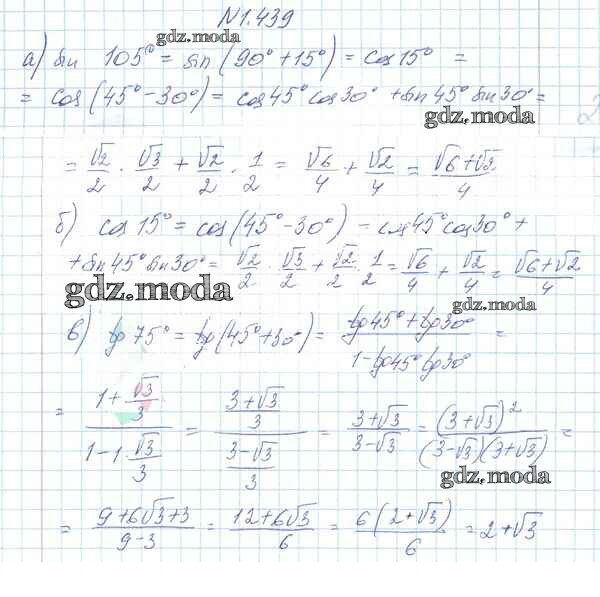 №1.439
gdz.moda
а) sin 105° = sin (90° + 15°) = cos 15° =
= cos (45° - 30°) = cos 45° cos 30° + sin 45° sin 30° =
gdz.moda
= √2/2 · √3/2 + √2/2 · 1/2 = √6/4 + √2/4 = (√6 + √2)/4
б) cos 15° = cos (45° - 30°) = cos 45° cos 30° +
+ sin 45° sin 30° = √2/2 · √3/2 + √2/2 · 1/2 = √6/4 + √2/4 = (√6 + √2)/4
gdz.moda
gdz.moda
в) tg 75° = tg (45° + 30°) = (tg 45° + tg 30°)/(1 - tg 45° tg 30°) =
= (1 + √3/3)/(1 - 1 · √3/3) = ((3 + √3)/3)/((3 - √3)/3) = (3 + √3)/(3 - √3) = (3 + √3)²/((3 - √3)(3 + √3)) =
gdz.moda
= (9 + 6√3 + 3)/(9 - 3) = (12 + 6√3)/6 = 6(2 + √3)/6 = 2 + √3